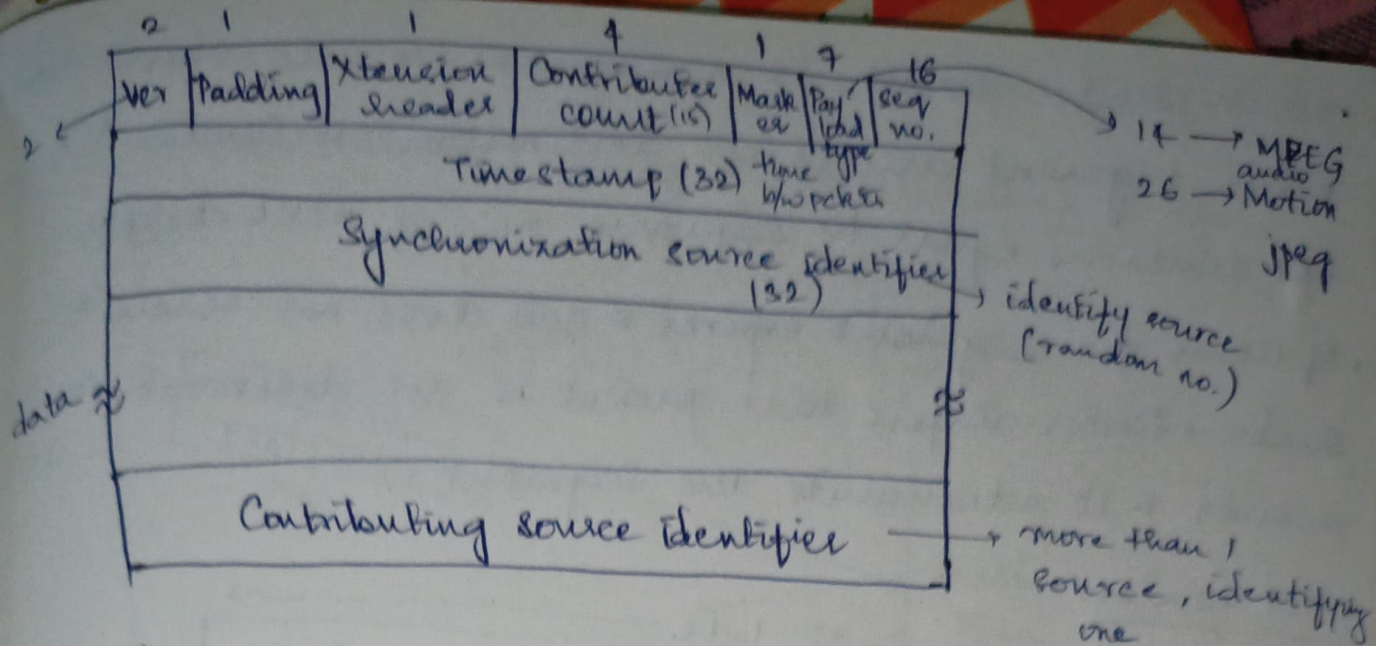 2 1 1 4 1 7 16
Ver Padding Xtension header Contributer count (15) Marker Payload type Seq no.
2
14 → MPEG audio
26 → Motion jpeg
Timestamp (32) time b/w pckts
Synchronization source identifier (32)
identify source
(random no.)
data
Contributing source identifier
more than 1
source, identifying
one